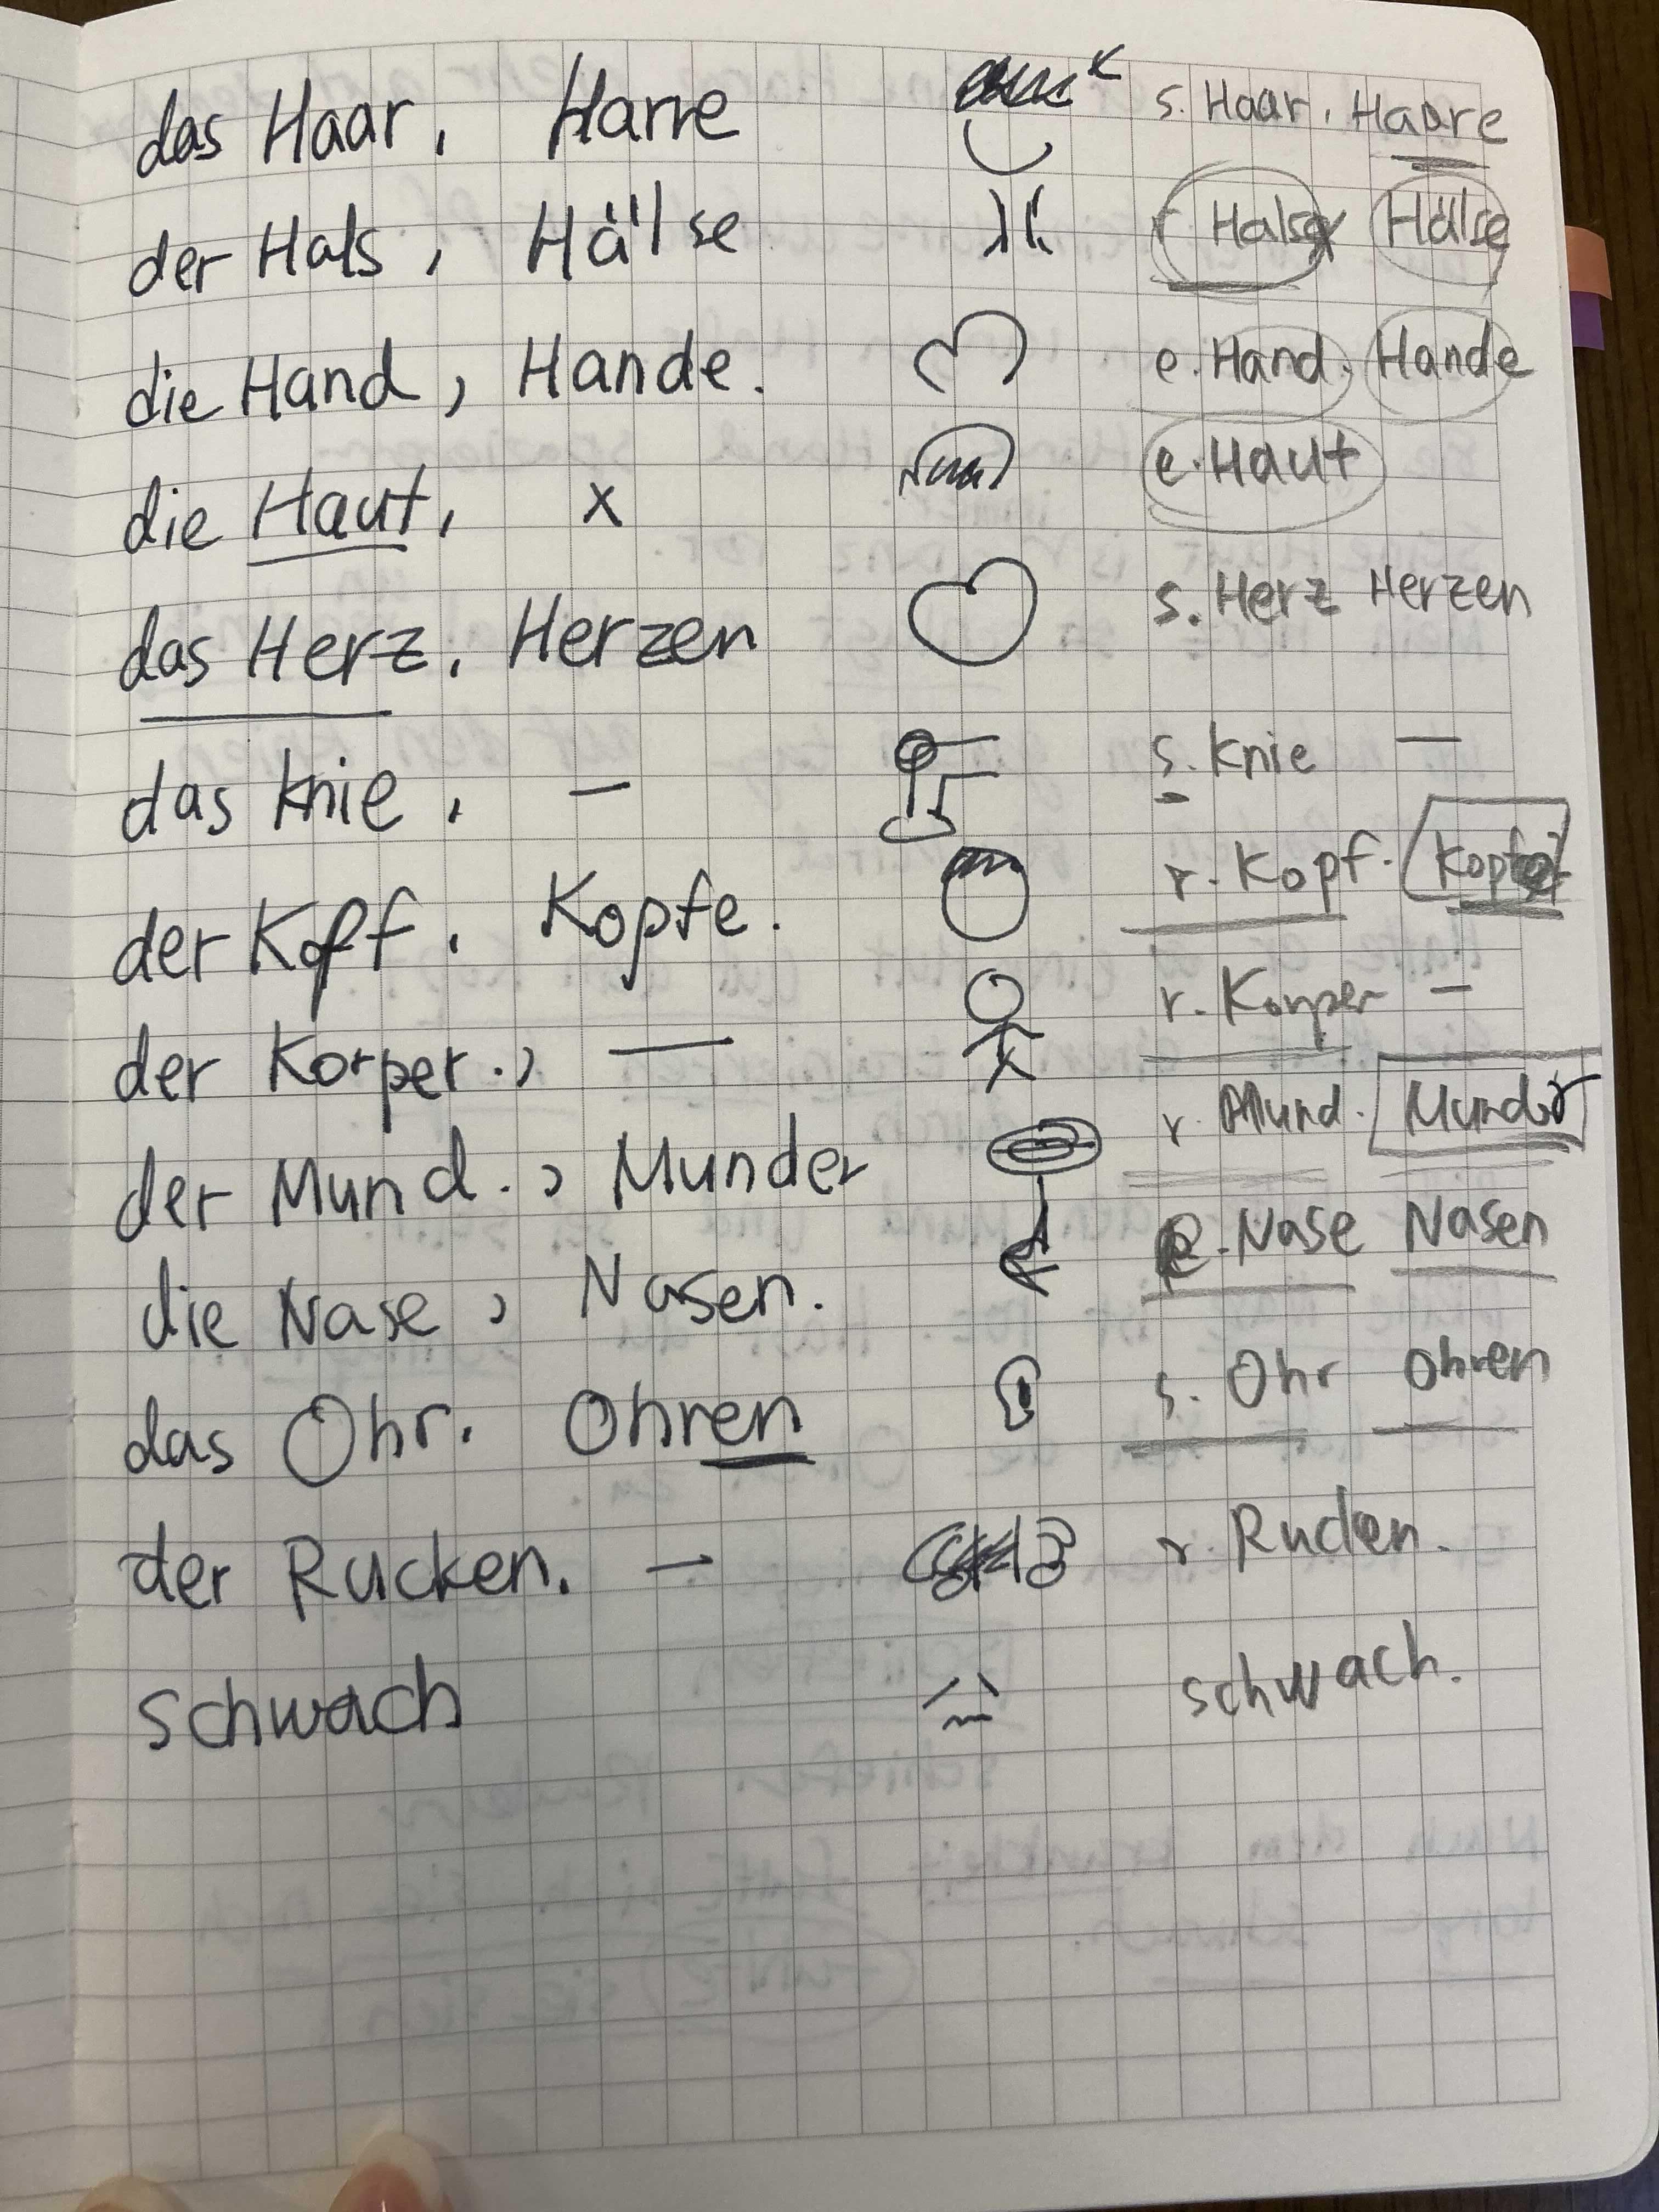 das Haar, Harre s. Haar, Haare
der Hals, Hälse r Halse Hälse
die Hand, Hande. e. Hand. Hande
die Haut, x e. Haut
das Herz, Herzen s. Herz Herzen
das Knie, – s. Knie —
der Kopf, Kopfe. r. Kopf. Kopfe
der Korper., — r. Korper –
der Mund., Munder r. Mund. Munder
die Nase, Nasen. e. Nase Nasen
das Ohr. Ohren s. Ohr Ohren
der Rucken. – r. Rucken.
schwach schwach.